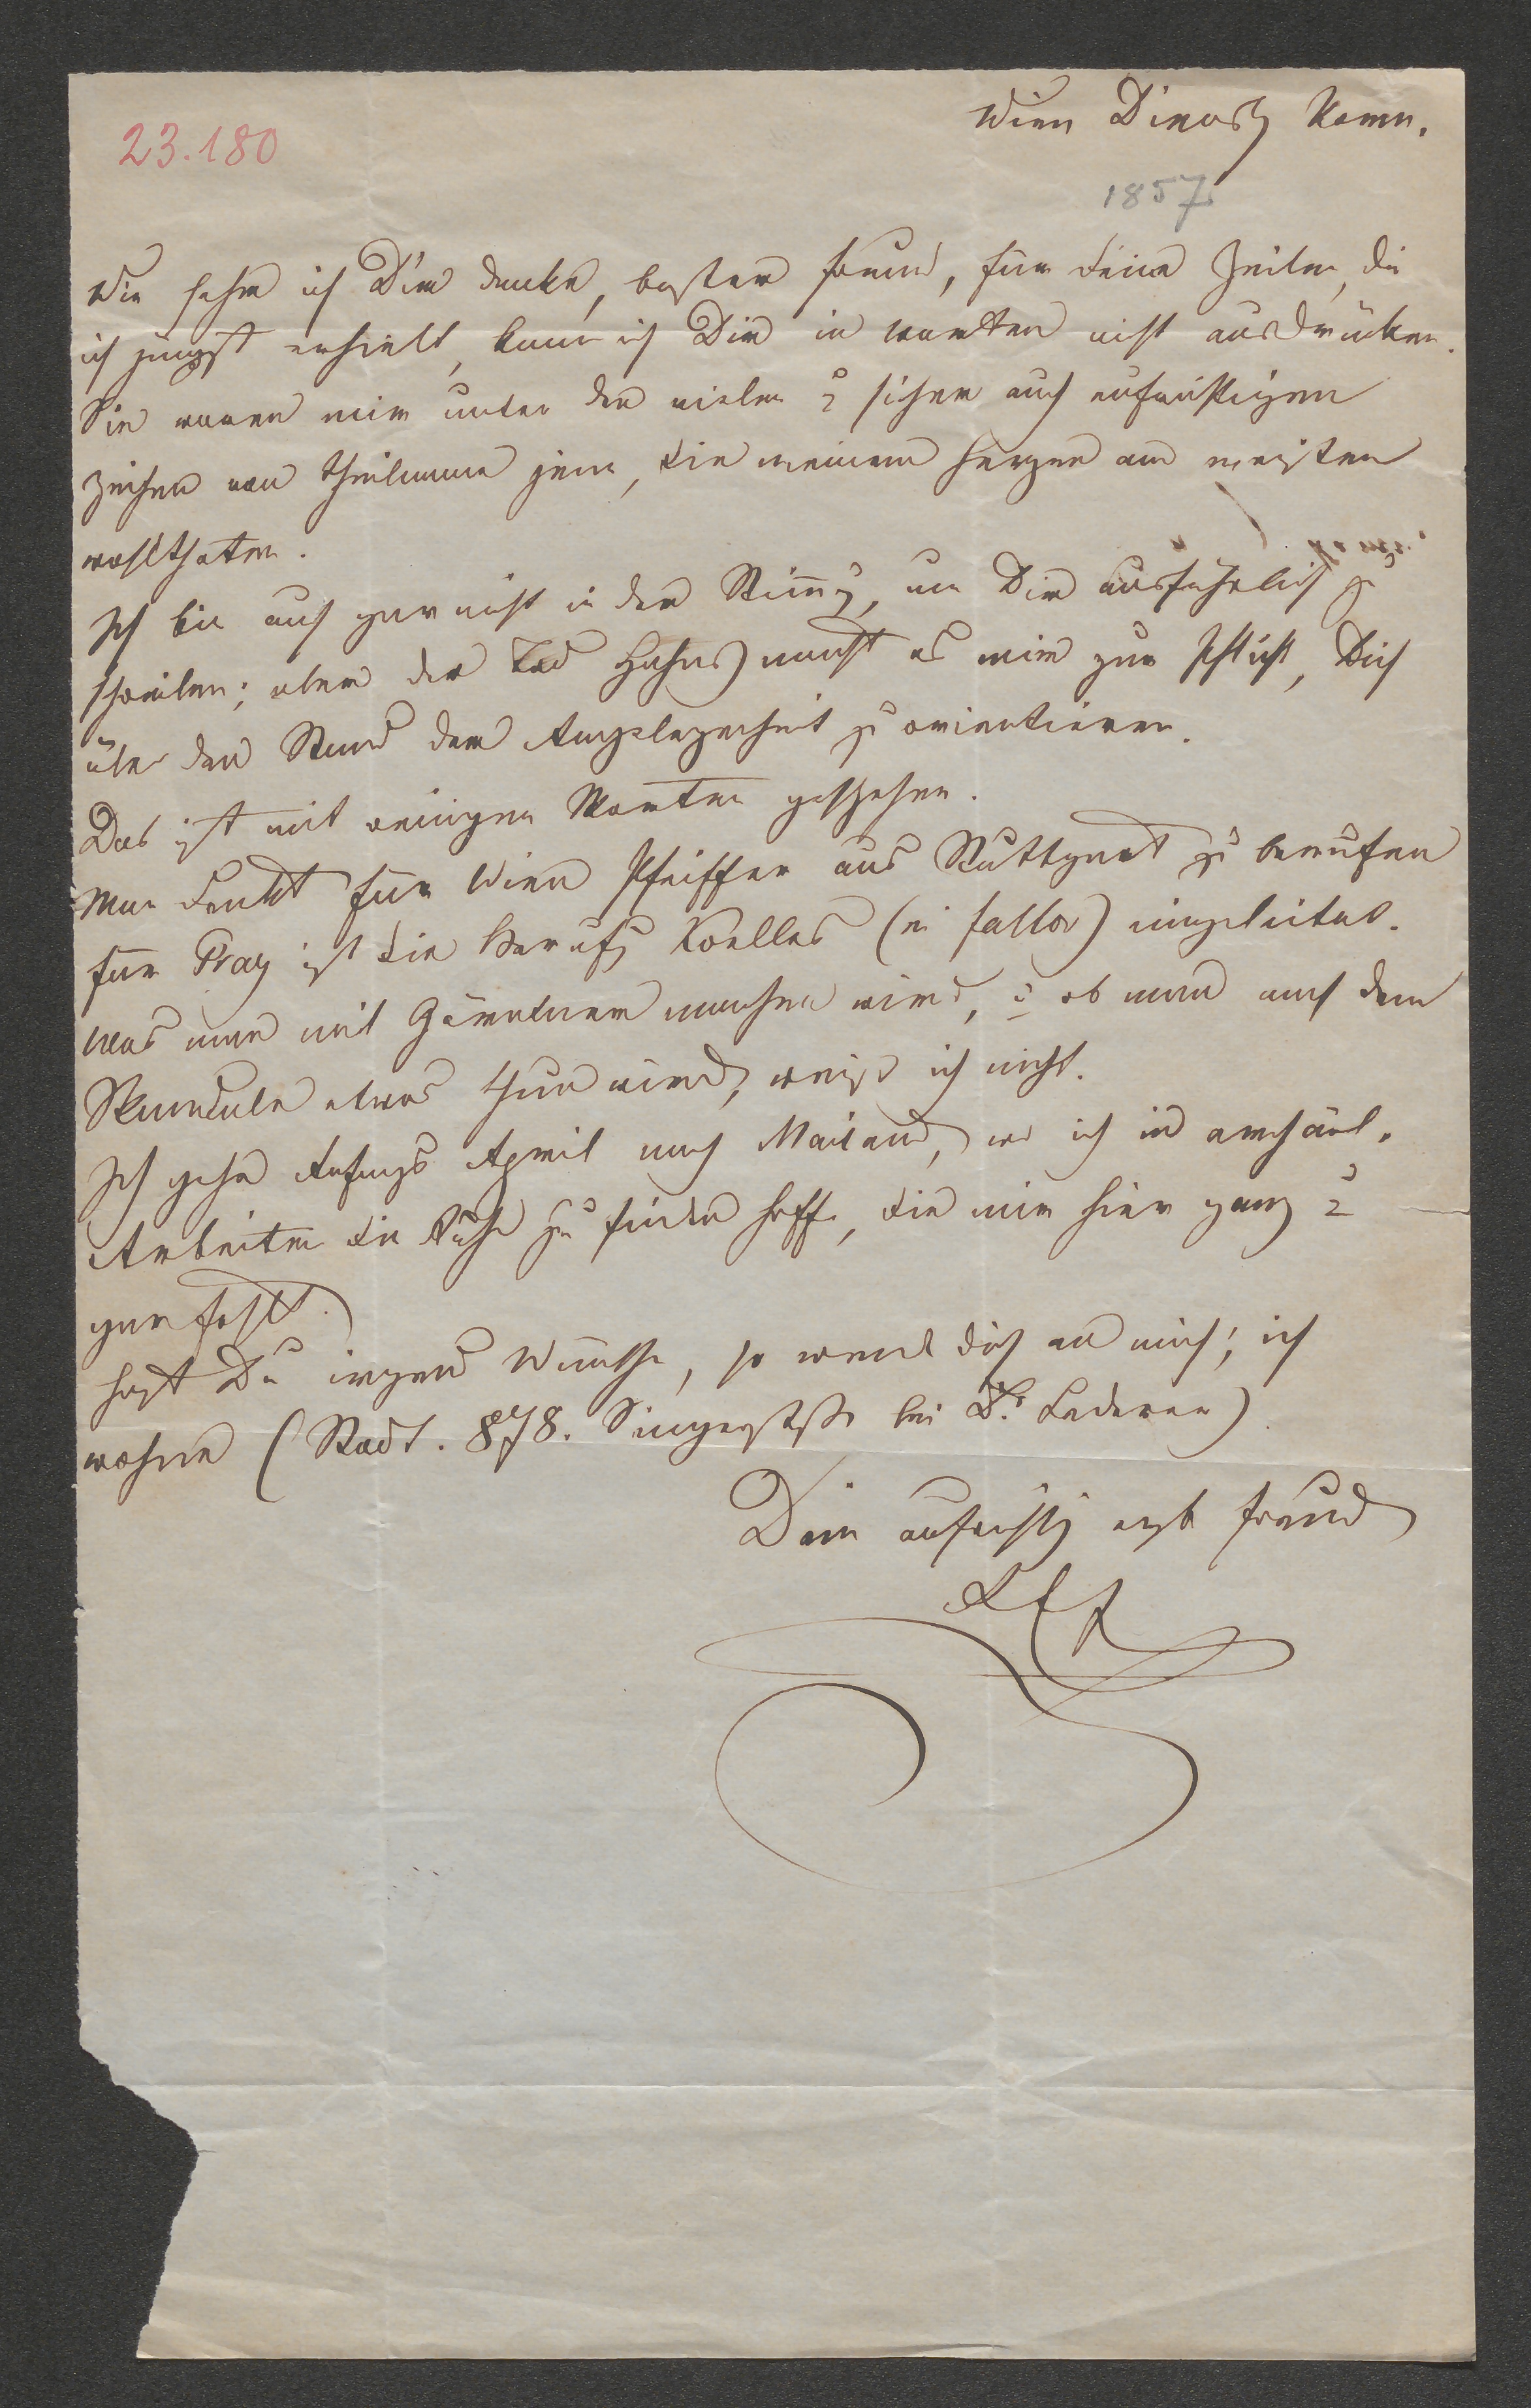 Wien Dinstg Vorm.
23.180
1857
Wie sehr ich Dir danke, bester Freund, für Deine Zeilen, die
ich jüngst erhielt, kann ich Dir in Worten nicht ausdrücken.
Sie waren mir unter den vielen & sicher auch aufrichtigen
Zeichen von Theilname jene, die meinem Herzen am meisten
wohlthaten.
Ich bin auch gar nicht in der Stimg, um Dir ausführlich zu
schreiben; aber der Tod Hahns macht es mir zur Pflicht, Dich
über den Stand der Angelegenheit zu orientieren.
Das ist mit wenigen Worten geschehen.
Man denkt für Wien Pfeiffer aus Stuttgart zu berufen
für Prag ist die Berufg Kelles (ni fallor) eingeleitet.
Was man mit Gärtner machen wird, & ob man nach dem
Skandale etwas thun wird, weiß ich nicht.
Ich gehe Anfangs April nach Mailand, wo ich in archäol.
Arbeiten die Ruhe zu finden hoffe, die mir hier ganz &
gar fehlt.
Hast Du irgend Wünsche, so wende dich an mich; ich
wohne (Stadt. 878. Singerstsse bei Dr. Lederer)
Dein aufrichtig ergb Freund